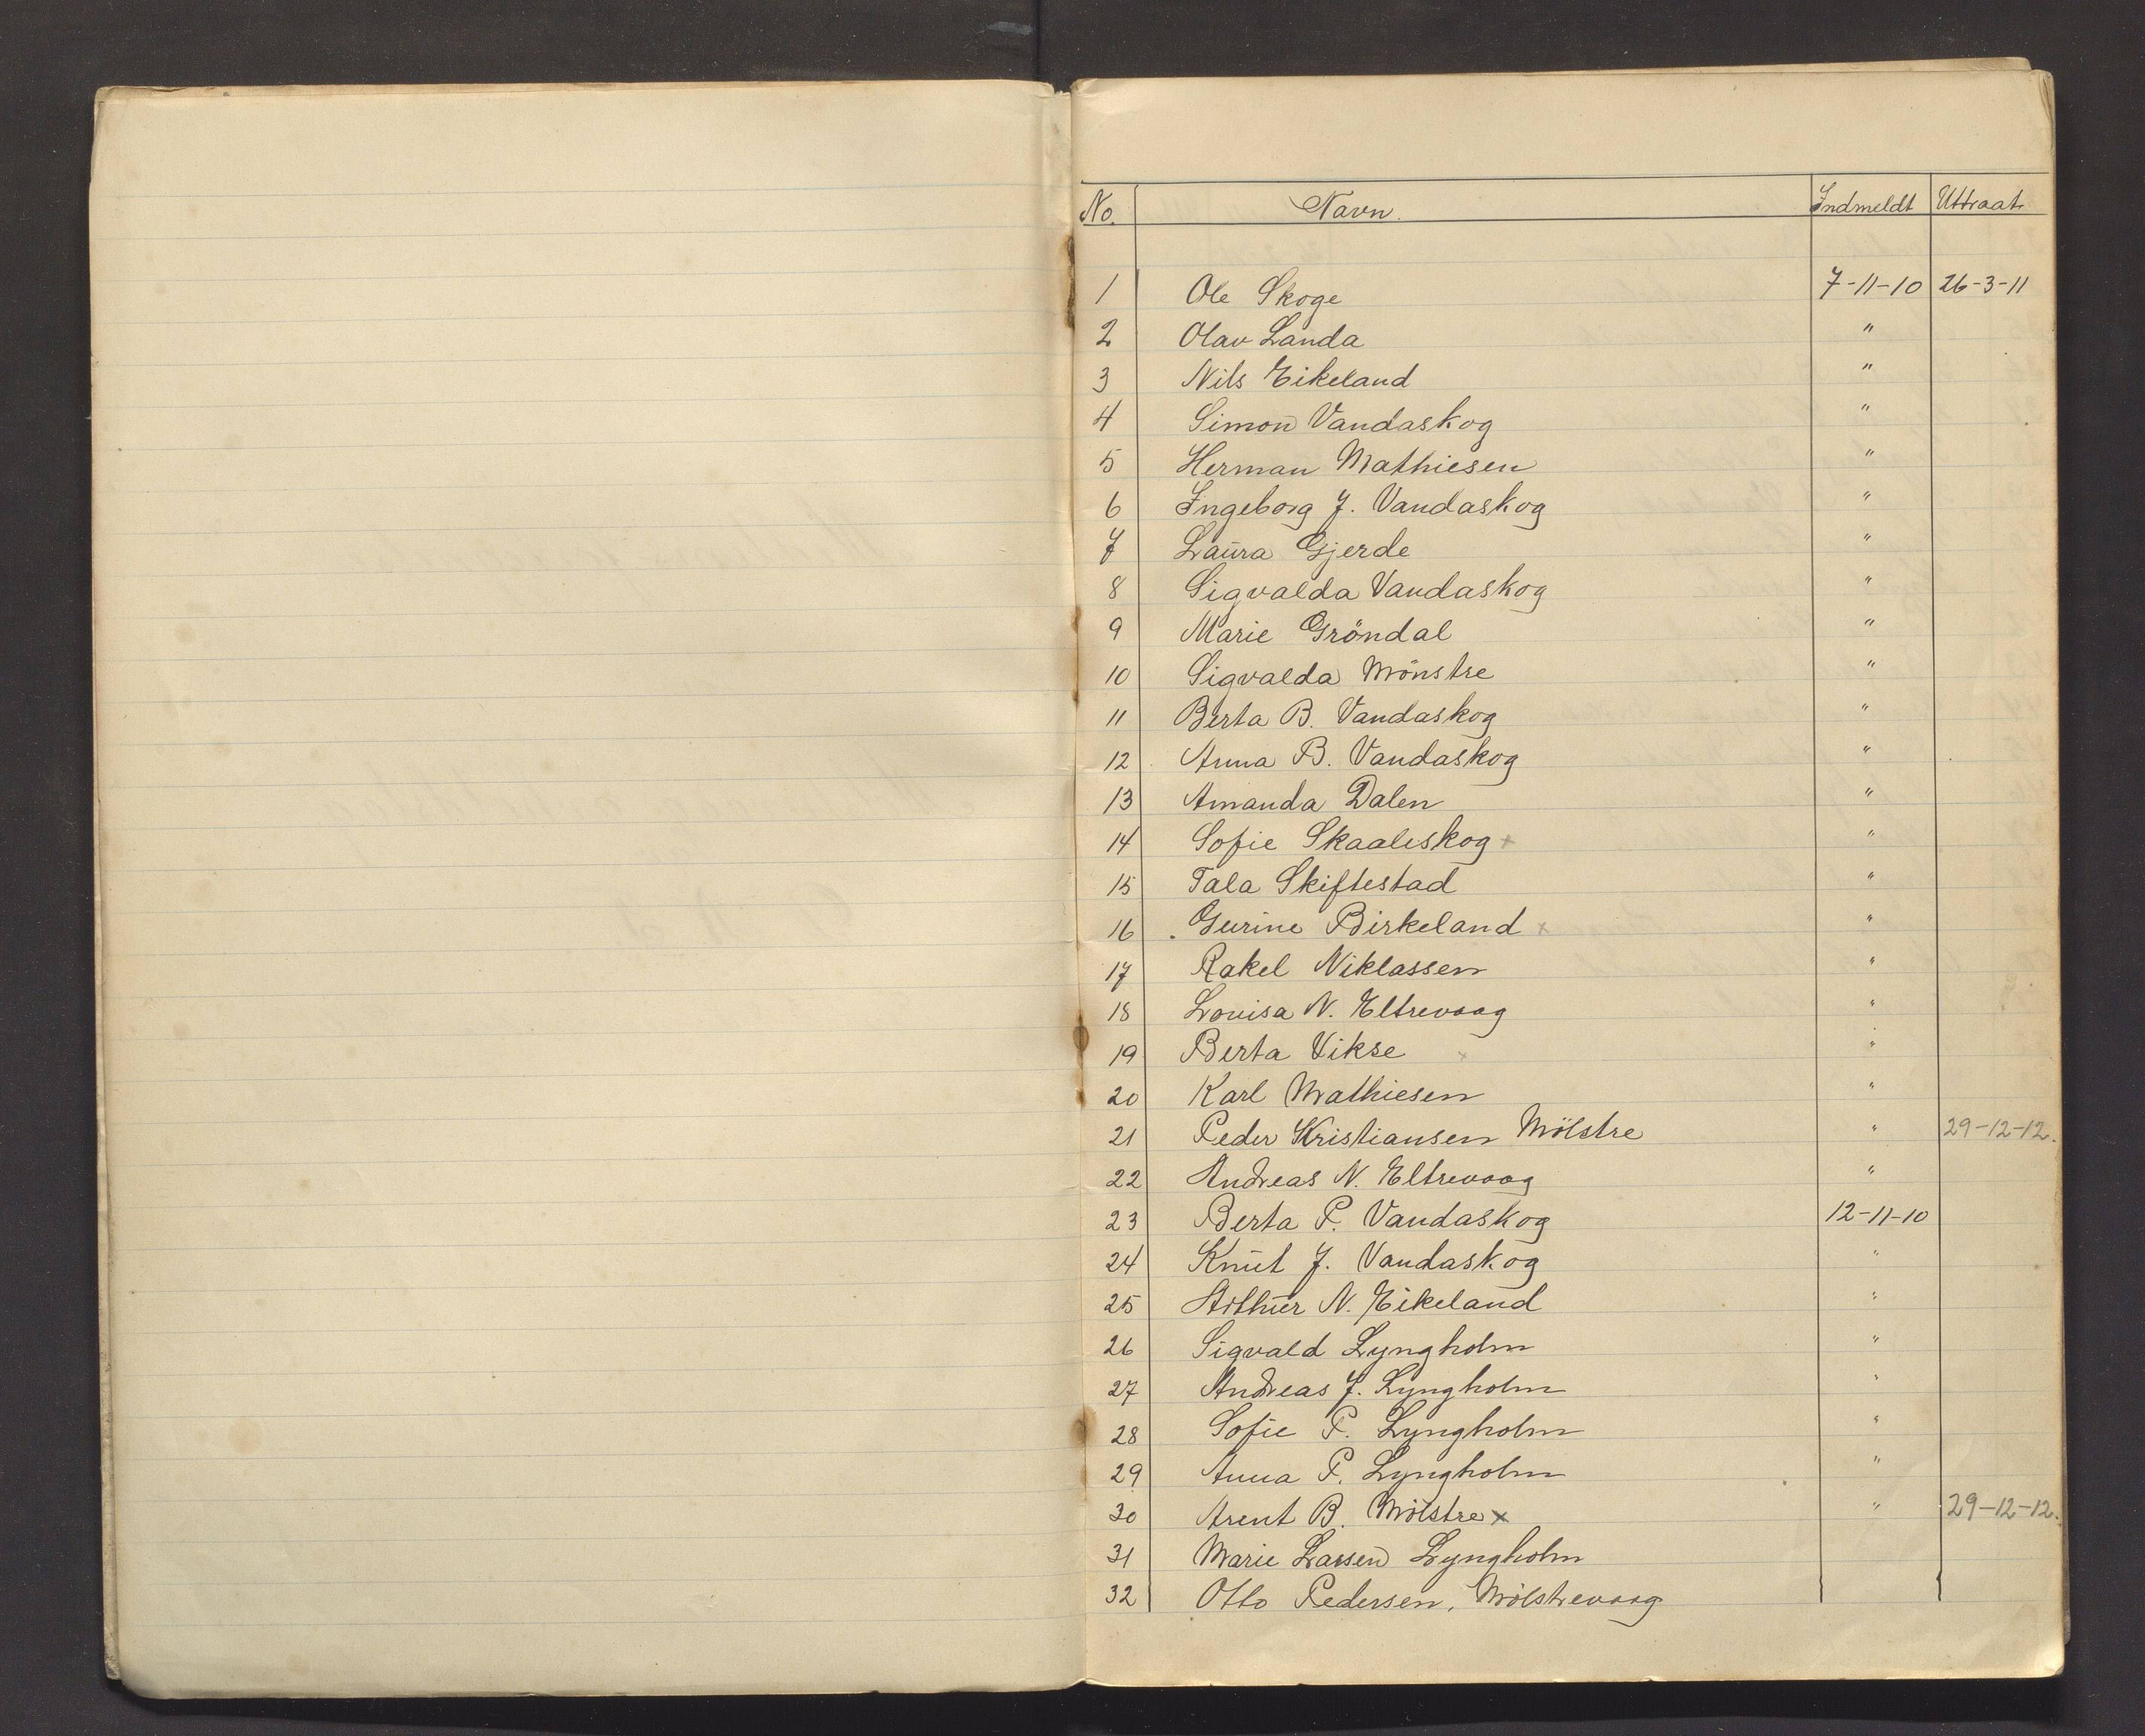 No. Navn. Indmeldt Uttraat.
1 Ole Skoge 7-11-10 26-3-11
2 Olav Landa "
3 Nils Eikeland "
4 Simon Vandaskog "
5 Herman Mathiesen "
6 Ingeborg J. Vandaskog "
7 Laura Gjerde "
8 Sigvalda Vandaskog "
9 Marie Gröndal "
10 Sigvalda Mönstre "
11 Berta B. Vandaskog "
12 Anna B. Vandaskog "
13 Amanda Dalen "
14 Sofie Skaaleskog x "
15 Tala Skiftestad "
16 Gurine Birkeland x "
17 Rakel Niklassen "
18 Lovisa N. Eltrevaag "
19 Berta Vikse x "
20 Karl Mathiesen "
21 Peder Kristiansen Mölstre " 29-12-12.
22 Andreas N. Eltrevaag "
23 Berta P. Vandaskog 12-11-10
24 Knut J. Vandaskog "
25 Arthur N. Eikeland "
26 Sigvald Lyngholm "
27 Andreas J. Lyngholm "
28 Sofie P. Lyngholm "
29 Anna P. Lyngholm "
30 Arent B. Mölstre x " 29-12-12.
31 Marie Larsen Lyngholm
32 Otto Pedersen, Mölstrevaag